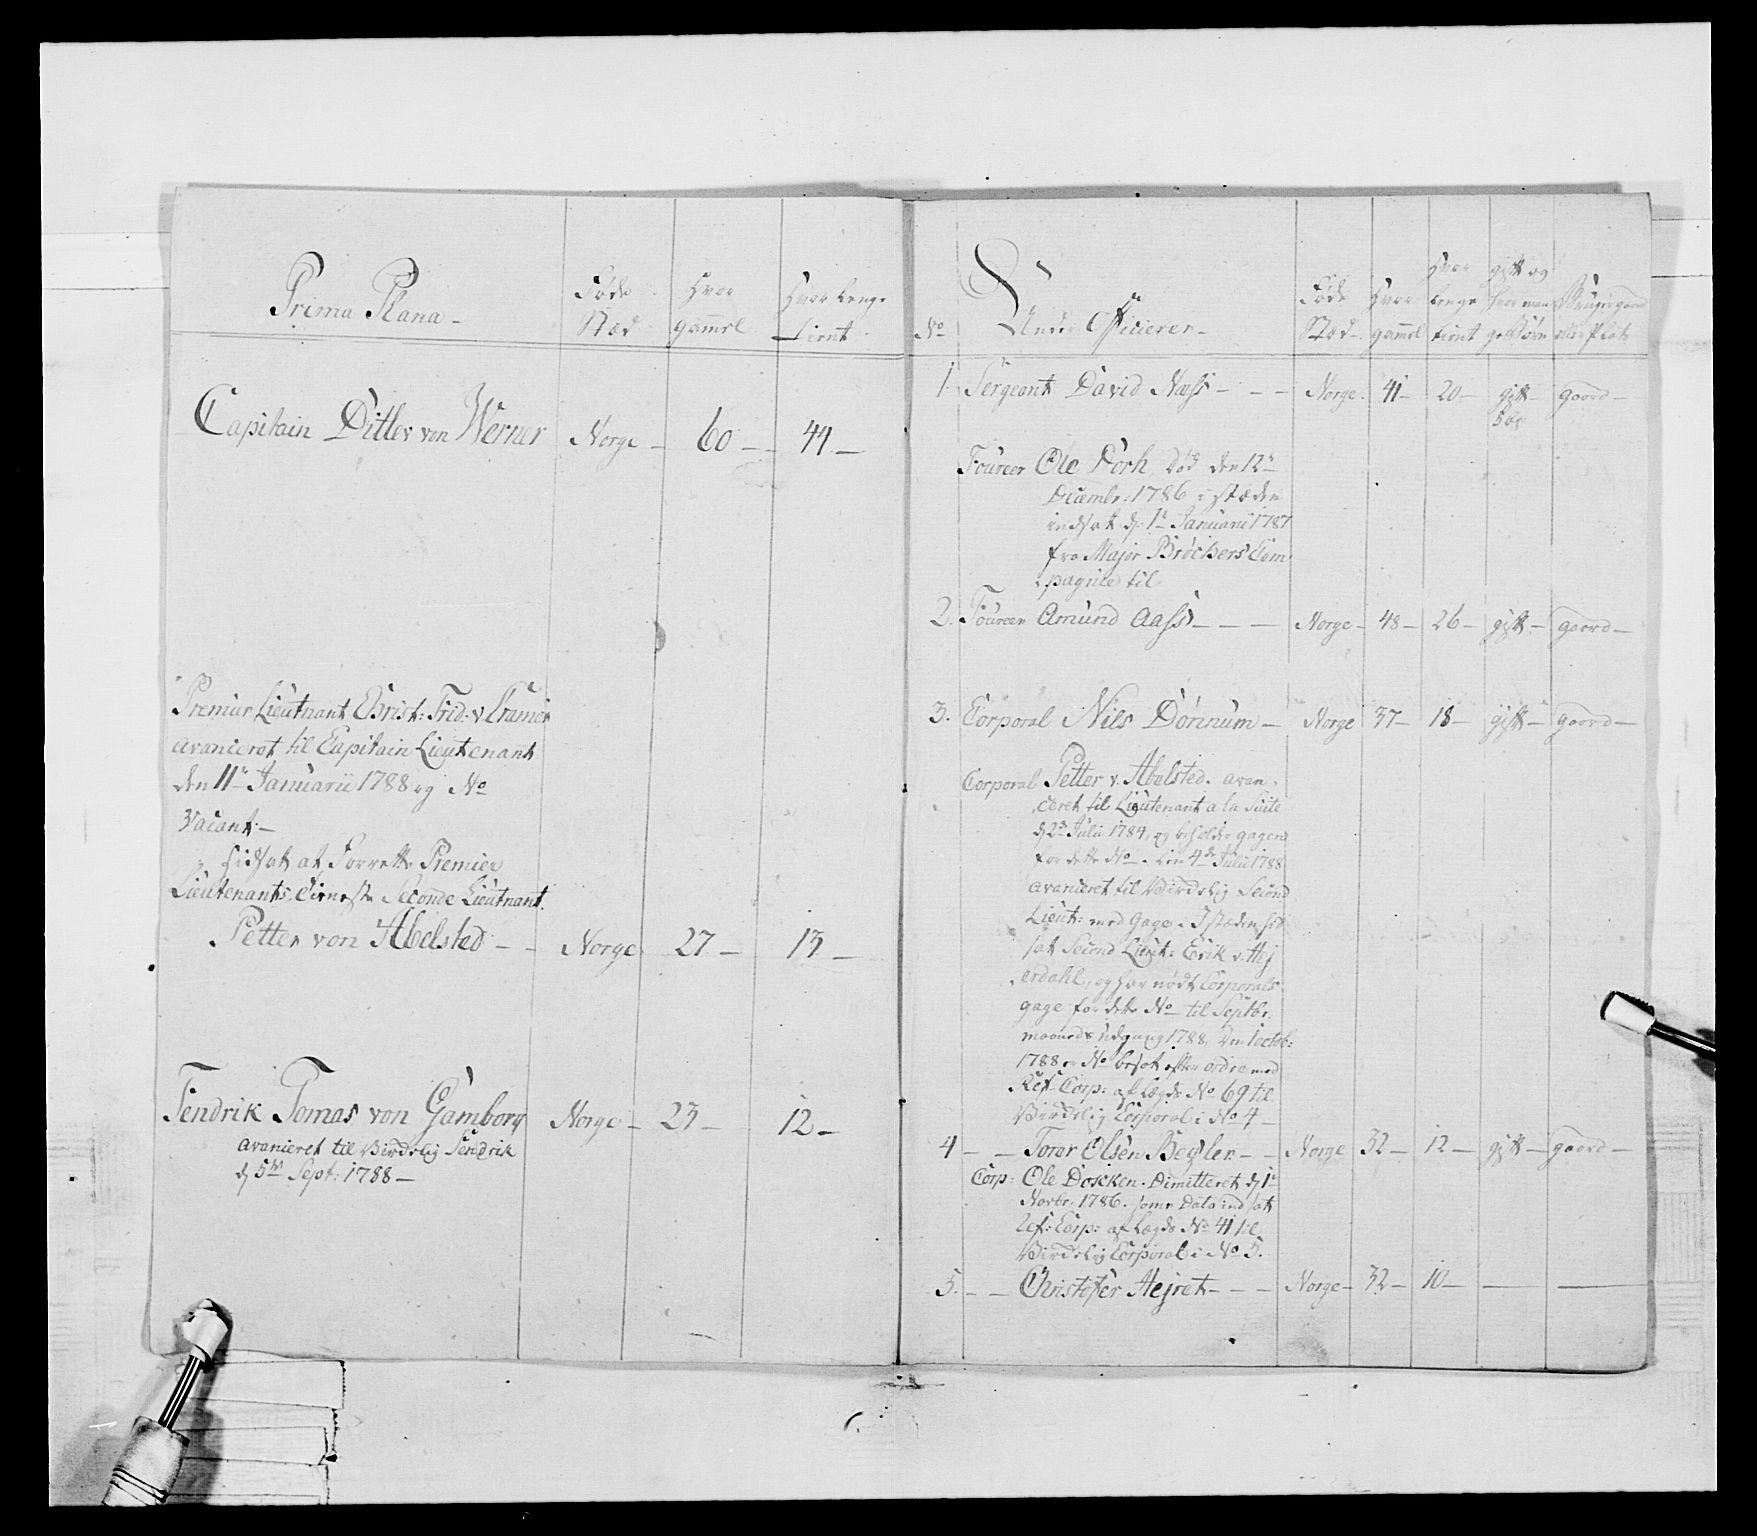 Prima Plana -
Føde
Stæd
Hvor
gamel
Hvor lenge
tient
Capitain Ditlev von Werner Norge - 60 - 44 -
Premier Lieutnant Christ: Frid: v Cramer
avanceret til Capitain Lieutenant
den 11te Januarii 1788 og No
Vacant -
hidsat at forrette Premier
Lieutenants tieneste Seconde Lieutnant.
Petter von Abelsted - - Norge 27 - 13 -
Fendrik Tomas von Gamborg Norge - 23 - 12 -
avanceret til Virkelig Fendrik
d 5te Sept: 1788 -
No
Under Officierer -
Føde
Stæd -
Hvor
gamel
Hvor
lenge
tient
gift og
hvor man-
ge Børn
Bruger gaard
eller Plads
1 Sergeant David Næss - - - Norge. 41 - 20 - gift - gaard -
Foureer Ole Dorh, død den 12te
Decembr: 1786 i stæden
indsat d: 1te Januarii 1787
fra Major Brøchers Com
pagnie til
2. Foureer Amund Aass - - - Norge - 48 - 26 - gift - gaard -
3. Corporal Nils Dønnum - Norge 37 - 18 - gift - gaard -
Corporal Petter v. Abelsted. avan-
ceret til Lieutenant a la Suite
d 2te Julii 1784, og beholder gagen
for dette No. Den 4de Julii 1788
avanceret til Virkelig Second
Lieut: med Gage. I stæden hid
sat Second Lieut: Erik v. Hej
erdahl, og har nødt Corporals
gage for dette No til Septbr.
maaneds udgang 1788, den 1 octob:
1788 er No besat efter ordre med
Ref. Corp: af Lægds No 69 til
Virkelig Corporal i No 4 -
4 - - Torer Olsen Begler - - Norge 32 - 12 - gift - gaard -
Corp: Ole Doscken. Dimitteret d 1te
Novbr. 1786. samme Dato indsat
Ref: Corp: af Lægds No 41 til
Virkelig Corporal i No 5.
5. - - Christofer Hejret - - - Norge - 32 - 10 - - -